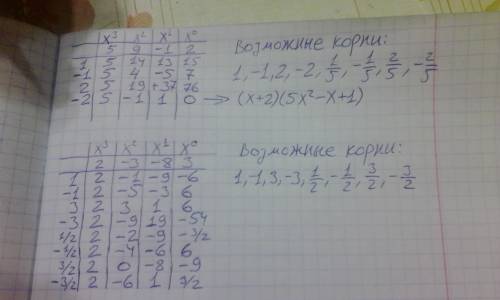 x³ x² x¹ x⁰
5 9 -1 2
1 5 14 13 15
-1 5 4 -5 7
2 5 19 +37 76
-2 5 -1 1 0 → (x+2)(5x²-x+1)
Возможные корни:
1, -1, 2, -2, 1/5, -1/5, 2/5, -2/5
x³ x² x¹ x⁰
2 -3 -8 3
1 2 -1 -9 -6
-1 2 -5 -3 6
3 2 3 1 6
-3 2 -9 19 -54
1/2 2 -2 -9 -3/2
-1/2 2 -4 -6 6
3/2 2 0 -8 -9
-3/2 2 -6 1 3/2
Возможные корни:
1, -1, 3, -3, 1/2, -1/2, 3/2, -3/2